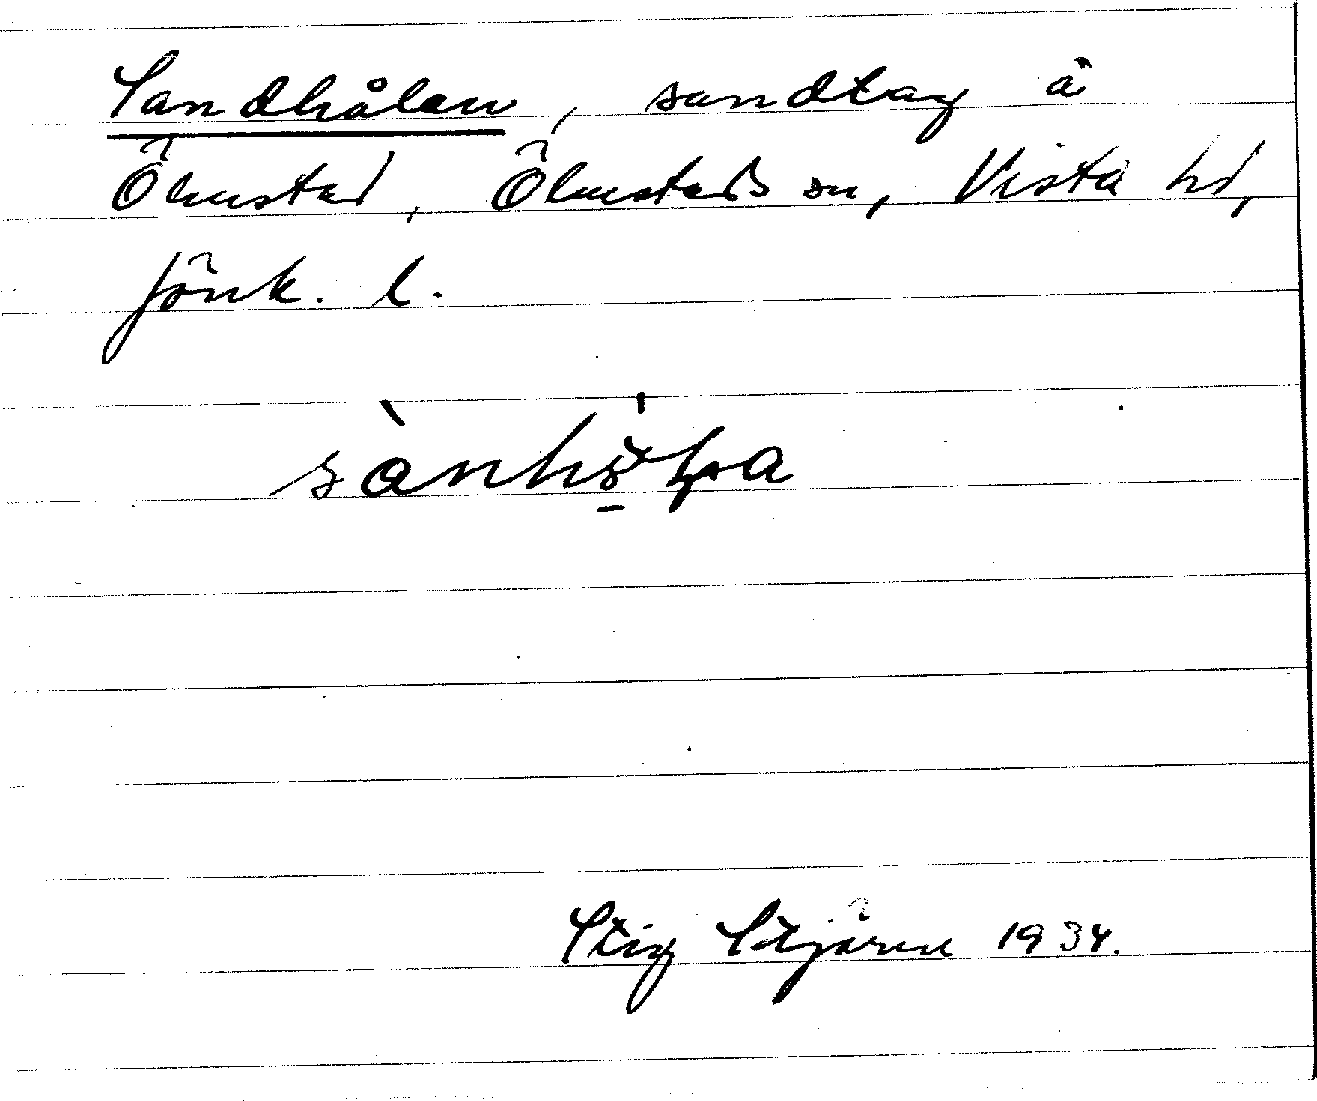 Sandhålan, sandtag å
Ölmstad, Ölmstads sn, Vista hd,
Jönk. l.
Stig Stjärne 1934.